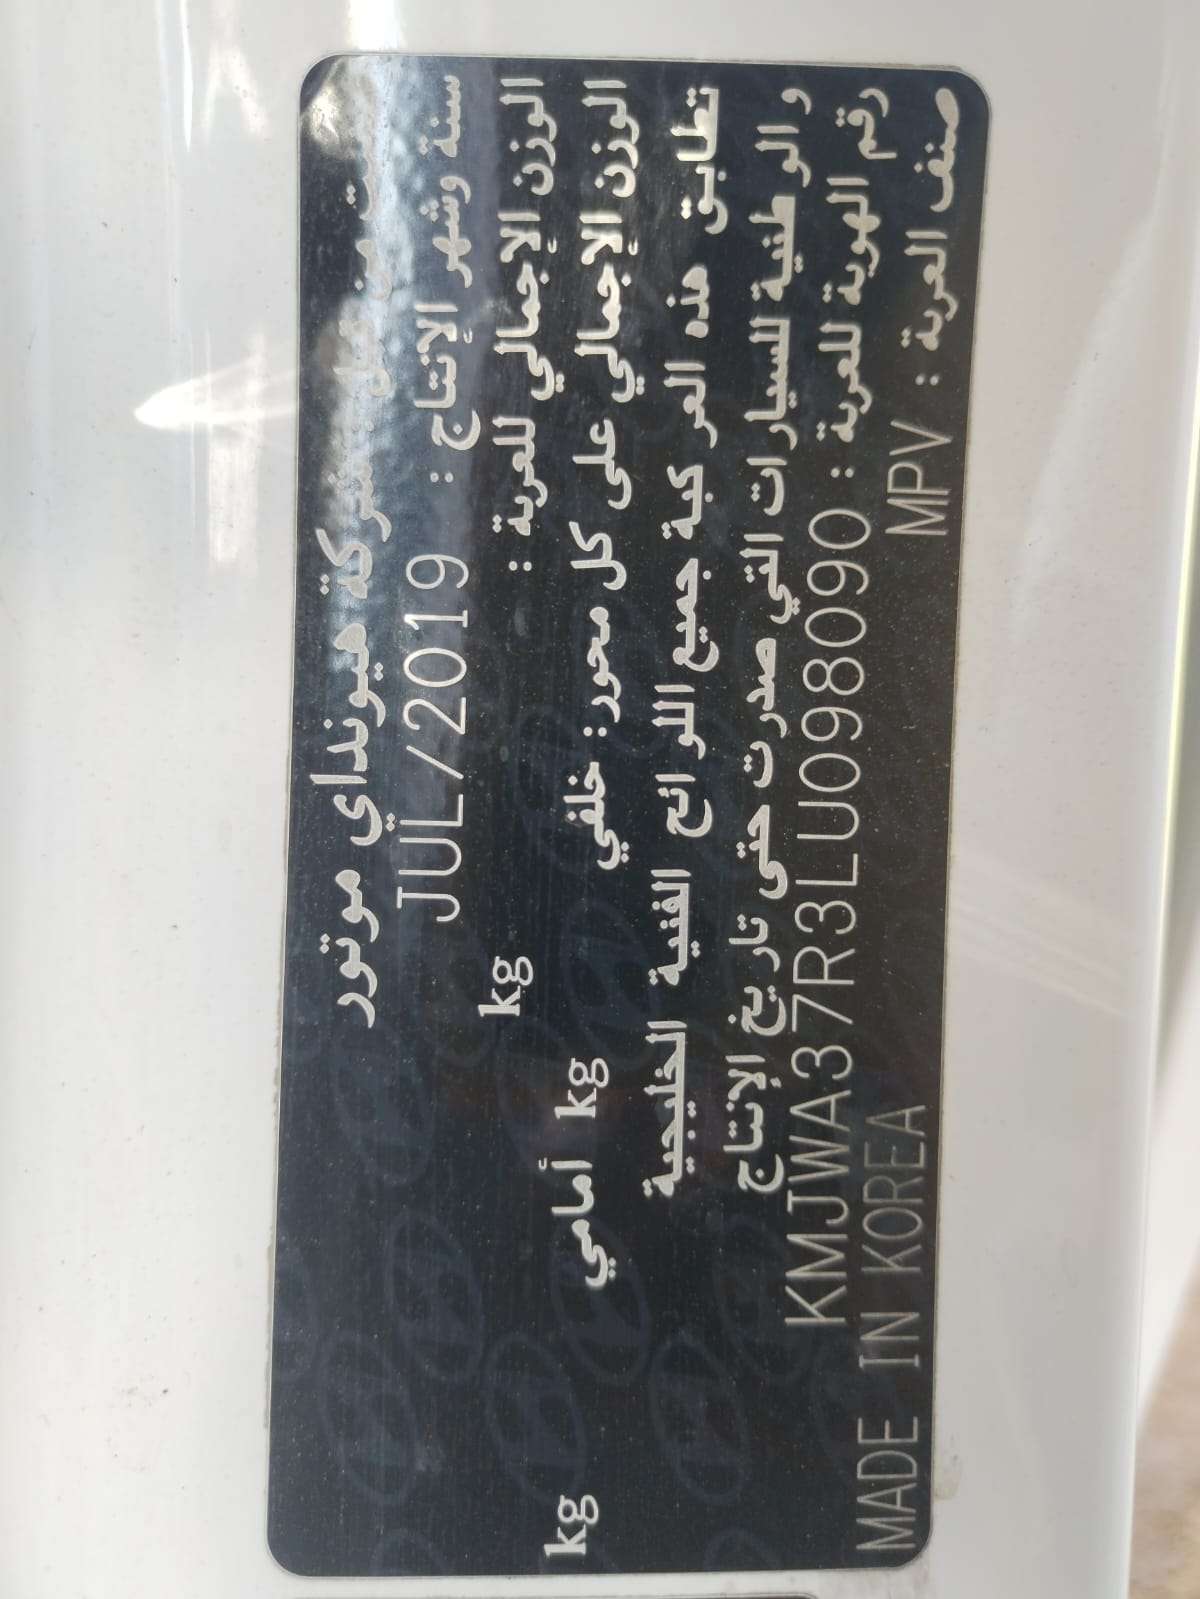 من قبل شركة هيونداي موتور
سنة وشهر الإنتاج : JUL/2019
الوزن الإجمالي للعربة : kg
الوزن الإجمالي على كل محور: خلفي kg أمامي kg
تطابق هذه العركبة جميع اللوائح الفنية الخليجية
و الوطنية للسيارات التي صدرت حتى تاريخ الإنتاج
رقم الهوية للعربة : KMJWA37R3LU098090
صنف العربة : MPV MADE IN KOREA